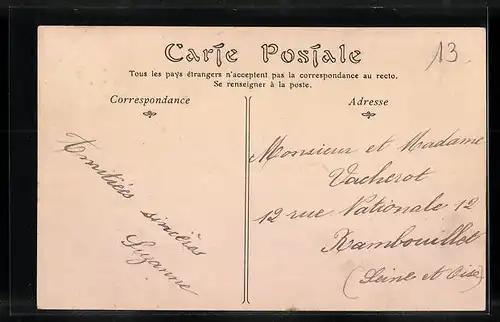 Carte Postale
13.
Tous les pays étrangers n'acceptent pas la correspondance au recto.
Se renseigner à la poste.
Correspondance
Amitiés
sincères
Suzanne
Adresse
Monsieur et Madame
Vacherot
12 rue Nationale 12
Rambouillet
(Seine et Oise)